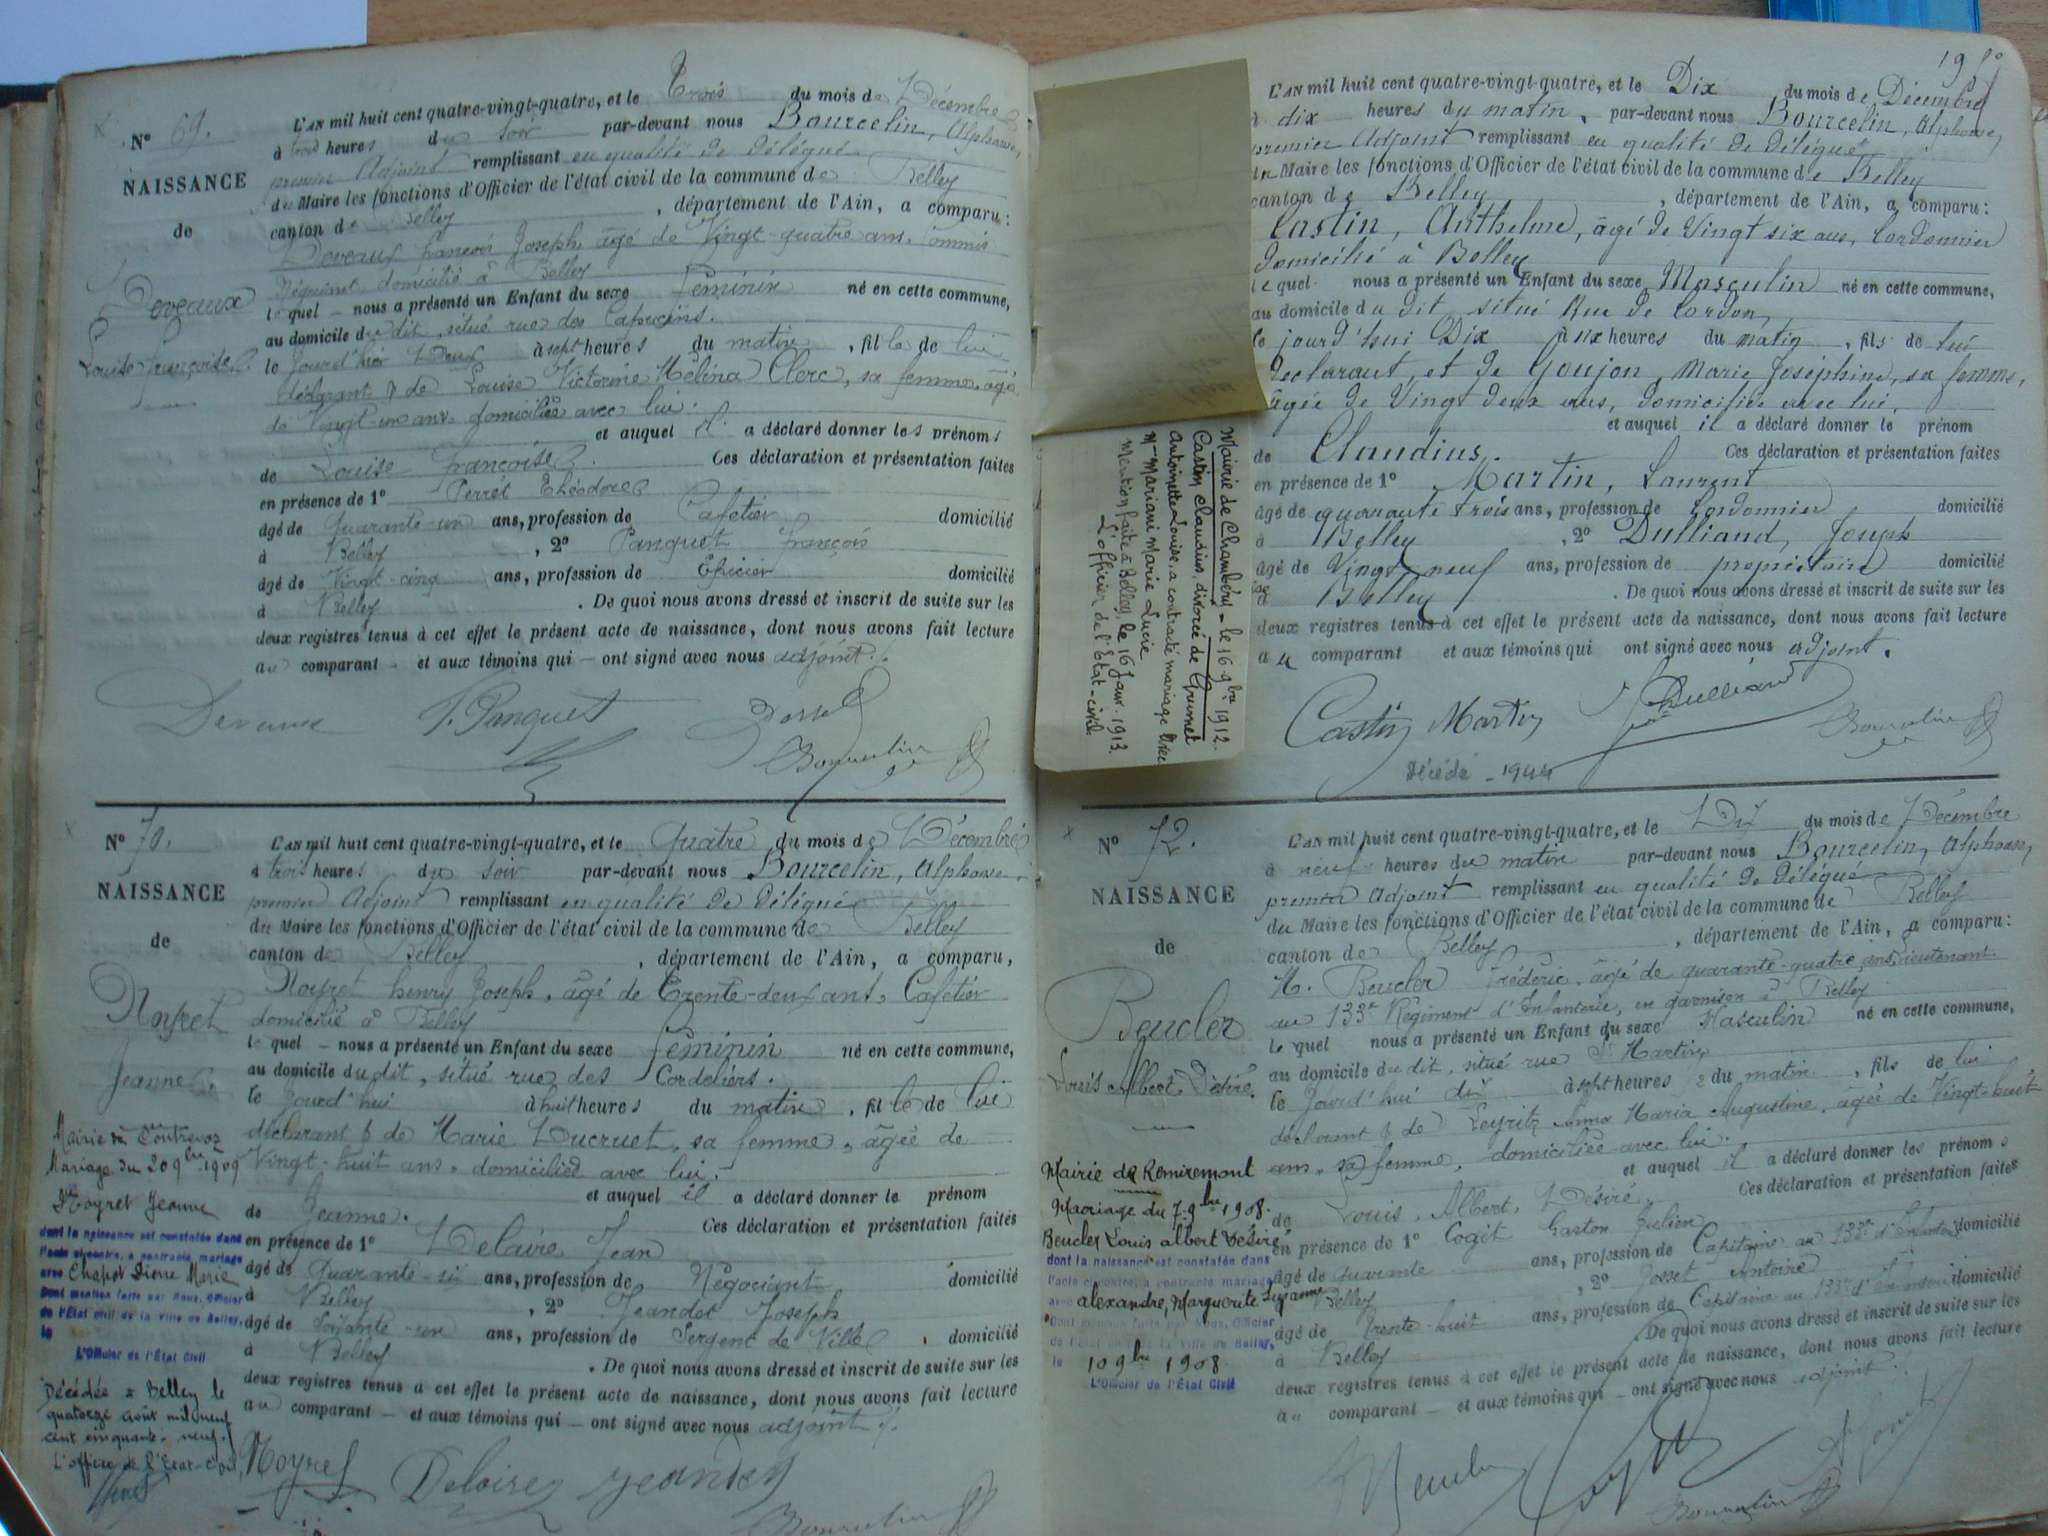 N° 69.
NAISSANCE
de
Deveaux
Louise Françoise
L'AN mil huit cent quatre-vingt-quatre, et le Trois du mois de Décembre
à trois heures du soir par-devant nous Bourcelin, Alphonse,
premier Adjoint remplissant en qualité de délégué
du Maire les fonctions d'Officier de l'état civil de la commune de Belley
canton de Belley, département de l'Ain, a comparu:
Deveaux françois Joseph, âgé de Vingt-quatre ans, Commis
domicilié à Belley
le quel – nous a présenté un Enfant du sexe féminin né en cette commune,
au domicile du dit, situé rue des Capucins.
le Jourd'hier Deux à sept heures du matin, fille de lui
déclarant & de Louise Victorine Mélina Clerc, sa femme, âgée
de Vingt-un ans domiciliée avec lui.
et auquel il a déclaré donner les prénoms
de Louise françoise. Ces déclaration et présentation faites
en présence de 1° Perret Théodore
âgé de Quarante-un ans, profession de Cafetier domicilié
à Belley, 2° Panguet françois
âgé de Vingt-cinq ans, profession de Epicier domicilié
à Belley. De quoi nous avons dressé et inscrit de suite sur les
deux registres tenus à cet effet le présent acte de naissance, dont nous avons fait lecture
au comparant – et aux témoins qui – ont signé avec nous adjoint.
Devaux F. Panguet
Bourcelin
N° 70.
NAISSANCE
de
Noyret
Jeanne
Mairie de Contrevoz
Mariage du 20 9bre 1909
Noyret Jeanne
dont la naissance est constatée dans
l'acte ci-contre, a contracté mariage
avec Chapot Pierre Marie
Dont mention faite par Nous, Officier
de l'État civil de la Ville de Belley,
le
L'Officier de l'État Civil
Décédée à Belley le
quatorze août mil neuf
cent cinquante-neuf.
L'officier de l'Etat-Civil,
L'AN mil huit cent quatre-vingt-quatre, et le Quatre du mois de Décembre
à trois heures du soir par-devant nous Bourcelin, Alphonse,
premier Adjoint remplissant en qualité de délégué
du Maire les fonctions d'Officier de l'état civil de la commune de Belley
canton de Belley, département de l'Ain, a comparu,
Noyret henry Joseph, âgé de Trente-deux ans, Cafetier
domicilié à Belley
le quel – nous a présenté un Enfant du sexe féminin né en cette commune,
au domicile du dit, situé rue des Cordeliers.
le Jourd'hui à huit heures du matin, fille de lui
déclarant & de Marie Ducruet, sa femme, âgée de
Vingt-huit ans, domiciliée avec lui.
et auquel il a déclaré donner le prénom
de Jeanne. Ces déclaration et présentation faites
en présence de 1° Delaire Jean
âgé de Quarante-six ans, profession de Négociant domicilié
à Belley, 2° Jeandet Joseph
âgé de Soixante-un ans, profession de Sergent de Ville, domicilié
à Belley. De quoi nous avons dressé et inscrit de suite sur les
deux registres tenus à cet effet le présent acte de naissance, dont nous avons fait lecture
au comparant – et aux témoins qui – ont signé avec nous adjoint.
Noyret Delaire Jeandet
Bourcelin
Mairie de Chambéry - le 16 9bre 1912.
Castin Claudius, divorcé de Grumet
Antoinette Louise, a contracté mariage avec
Mme Mariani Marie Lucie
Mention faite à Belley, le 16 Janv. 1913.
L'officier de l'Etat-civil.
L'AN mil huit cent quatre-vingt-quatre, et le Dix du mois de Décembre
à dix heures du matin, par-devant nous Bourcelin, Alphonse,
premier Adjoint remplissant en qualité de délégué
du Maire les fonctions d'Officier de l'état civil de la commune de Belley
canton de Belley, département de l'Ain, a comparu:
Castin, Anthelme, âgé de Vingt six ans, Cordonnier
domicilié à Belley
le quel nous a présenté un Enfant du sexe Masculin né en cette commune,
au domicile du dit situé Rue de Cordon,
le jourd'hui Dix à six heures du matin, fils de lui
déclarant, et de Goujon, Marie Joséphine, sa femme,
âgée de Vingt deux ans, domiciliée avec lui,
et auquel il a déclaré donner le prénom
de Claudius. Ces déclaration et présentation faites
en présence de 1° Martin, Laurent
âgé de quarante trois ans, profession de Cordonnier domicilié
à Belley, 2° Dulliand, Joseph
âgé de Vingt neuf ans, profession de propriétaire domicilié
à Belley. De quoi nous avons dressé et inscrit de suite sur les
deux registres tenus à cet effet le présent acte de naissance, dont nous avons fait lecture
au comparant et aux témoins qui ont signé avec nous adjoint.
Castin Martin J. Dulliand
Bourcelin
Décédé - 1944
N° 72.
NAISSANCE
de
Beucler
Louis Albert Désiré.
Mairie de Remiremont
Mariage du 7 9bre 1908.
Beucler Louis albert Désiré
dont la naissance est constatée dans
l'acte ci-contre, a contracté mariage
avec alexandre, Marguerite Suzanne
Dont mention faite par Nous, Officier
de l'État civil de la Ville de Belley,
le 10 9bre 1908.
L'Officier de l'État Civil
L'AN mil huit cent quatre-vingt-quatre, et le Dix du mois de Décembre
à neuf heures du matin par-devant nous Bourcelin, Alphonse,
premier Adjoint remplissant en qualité de délégué
du Maire les fonctions d'Officier de l'état civil de la commune de Belley
canton de Belley, département de l'Ain, a comparu:
M. Beucler Frédéric, âgé de quarante-quatre ans, Lieutenant
au 133e Régiment d'Infanterie, en garnison à Belley
le quel nous a présenté un Enfant du sexe Masculin né en cette commune,
au domicile du dit, situé rue St Martin
le Jourd'hui dix à sept heures du matin, fils de lui
déclarant & de Leyritz Anna Maria Augustine, âgée de Vingt-huit
ans, sa femme, domiciliée avec lui.
et auquel il a déclaré donner les prénoms
de Louis, Albert, Désiré. Ces déclaration et présentation faites
en présence de 1° Cogit Gaston Julien
âgé de quarante ans, profession de Capitaine au 133e d'Infanterie domicilié
à Belley, 2° Josset Antoine
âgé de Trente-huit ans, profession de Capitaine au 133e d'Infanterie domicilié
à Belley. De quoi nous avons dressé et inscrit de suite sur les
deux registres tenus à cet effet le présent acte de naissance, dont nous avons fait lecture
au comparant – et aux témoins qui – ont signé avec nous adjoint.
Beucler
Bourcelin